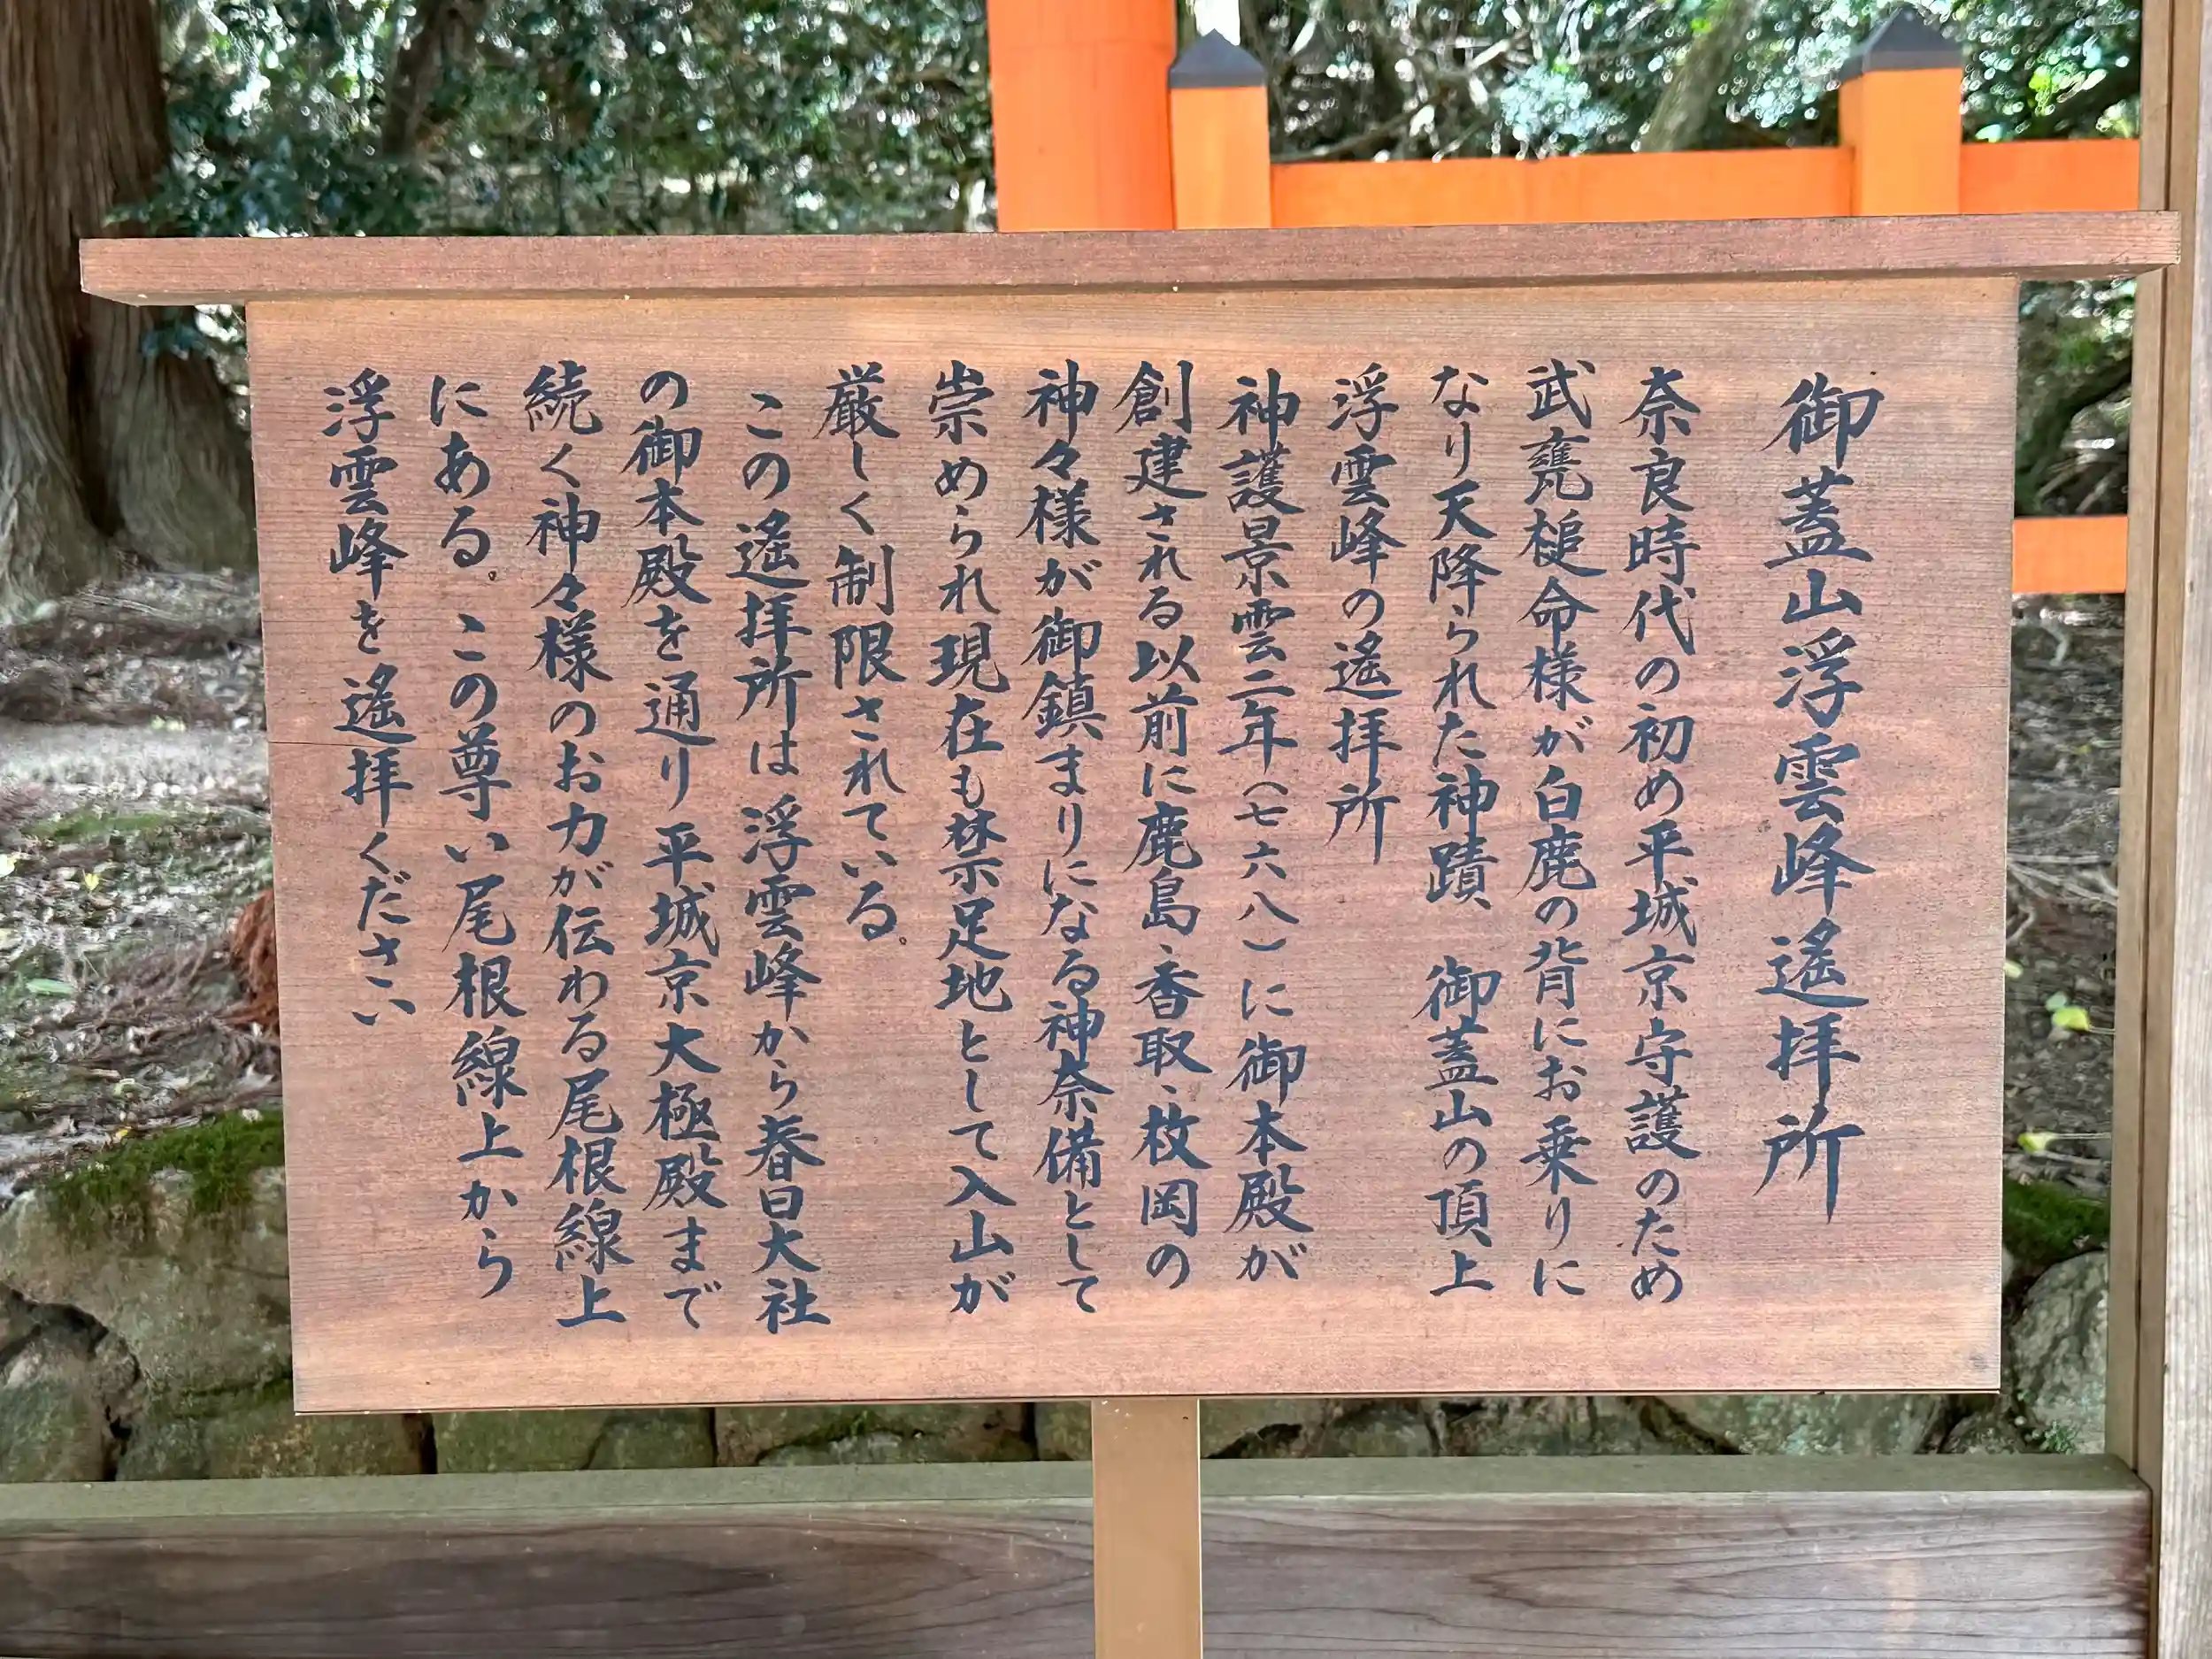 御蓋山浮雲峰遙拝所
奈良時代の初め平城京守護のため
武甕槌命様が白鹿の背にお乗りに
なり天降られた神蹟、御蓋山の頂上
浮雲峰の遙拝所
神護景雲二年(七六八)に御本殿が
創建される以前に鹿島、香取、枚岡の
神々様が御鎮まりになる神奈備として
崇められ現在も禁足地として入山が
厳しく制限されている。
この遙拝所は浮雲峰から春日大社
の御本殿を通り平城京大極殿まで
続く神々様のお力が伝わる尾根線上
にある。この尊い尾根線上から
浮雲峰を遙拝ください